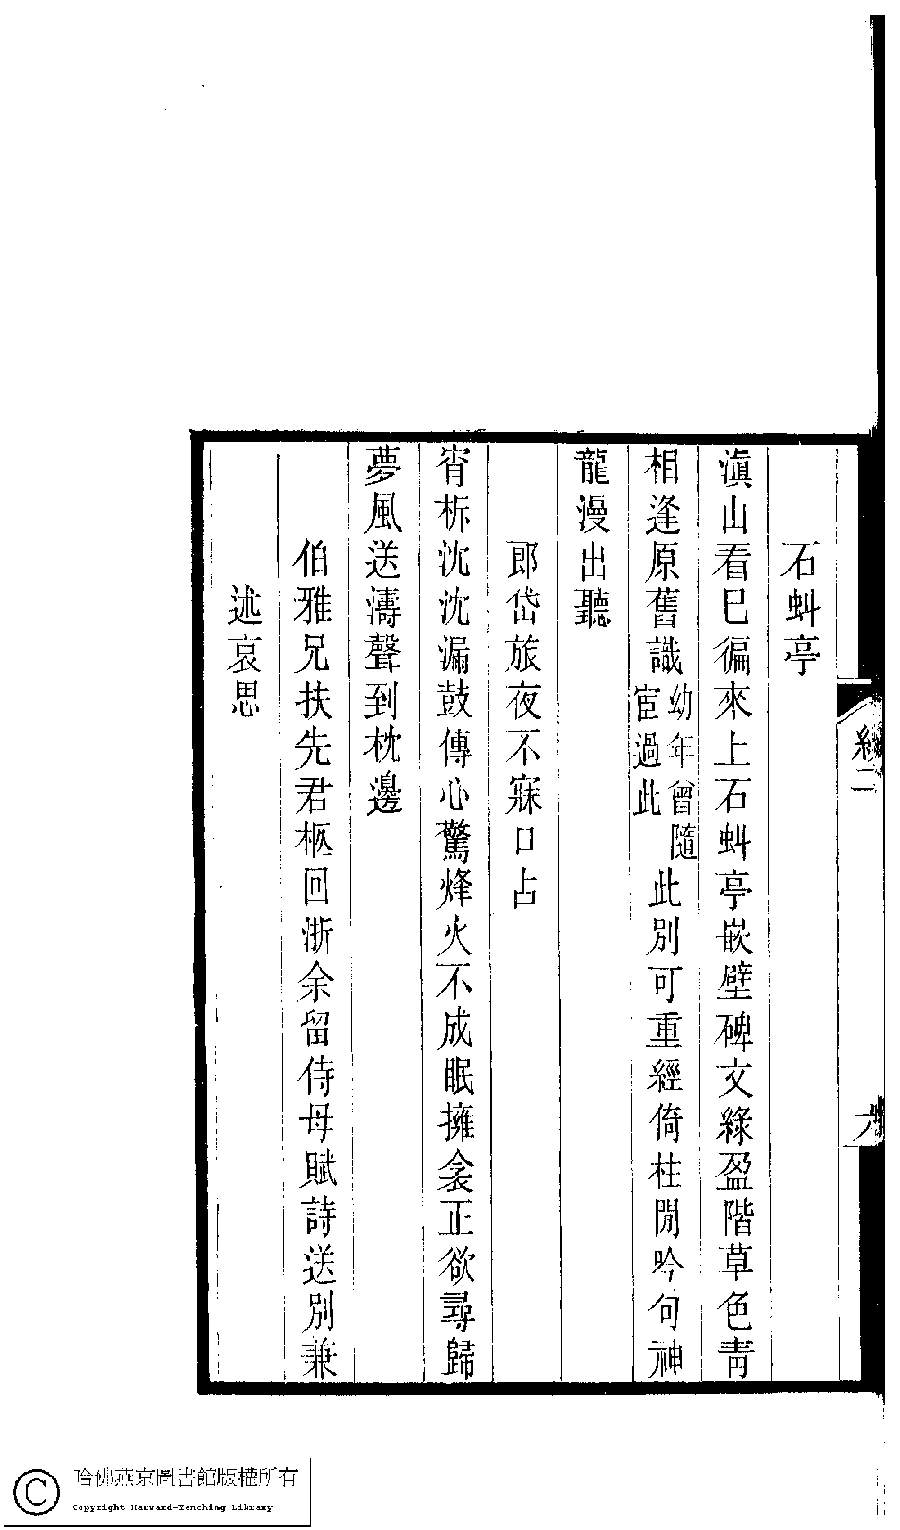 石蚪亭
滇山看巳徧來上石蚪亭嵌壁碑文綠盈階草色青
相逢原舊識幼年曾隨宦過此此別可重經倚柱閒吟句神
龍漫出聽
郎岱旅夜不寐口占
宵柝沈沈漏鼓傳心驚烽火不成眠擁衾正欲尋歸
夢風送濤聲到枕邊
伯雅兄扶先君柩回浙余留侍母賦詩送別兼
述哀思
二
六
哈佛燕京圖書館版權所有
Copyright Harvard-Yenching Library